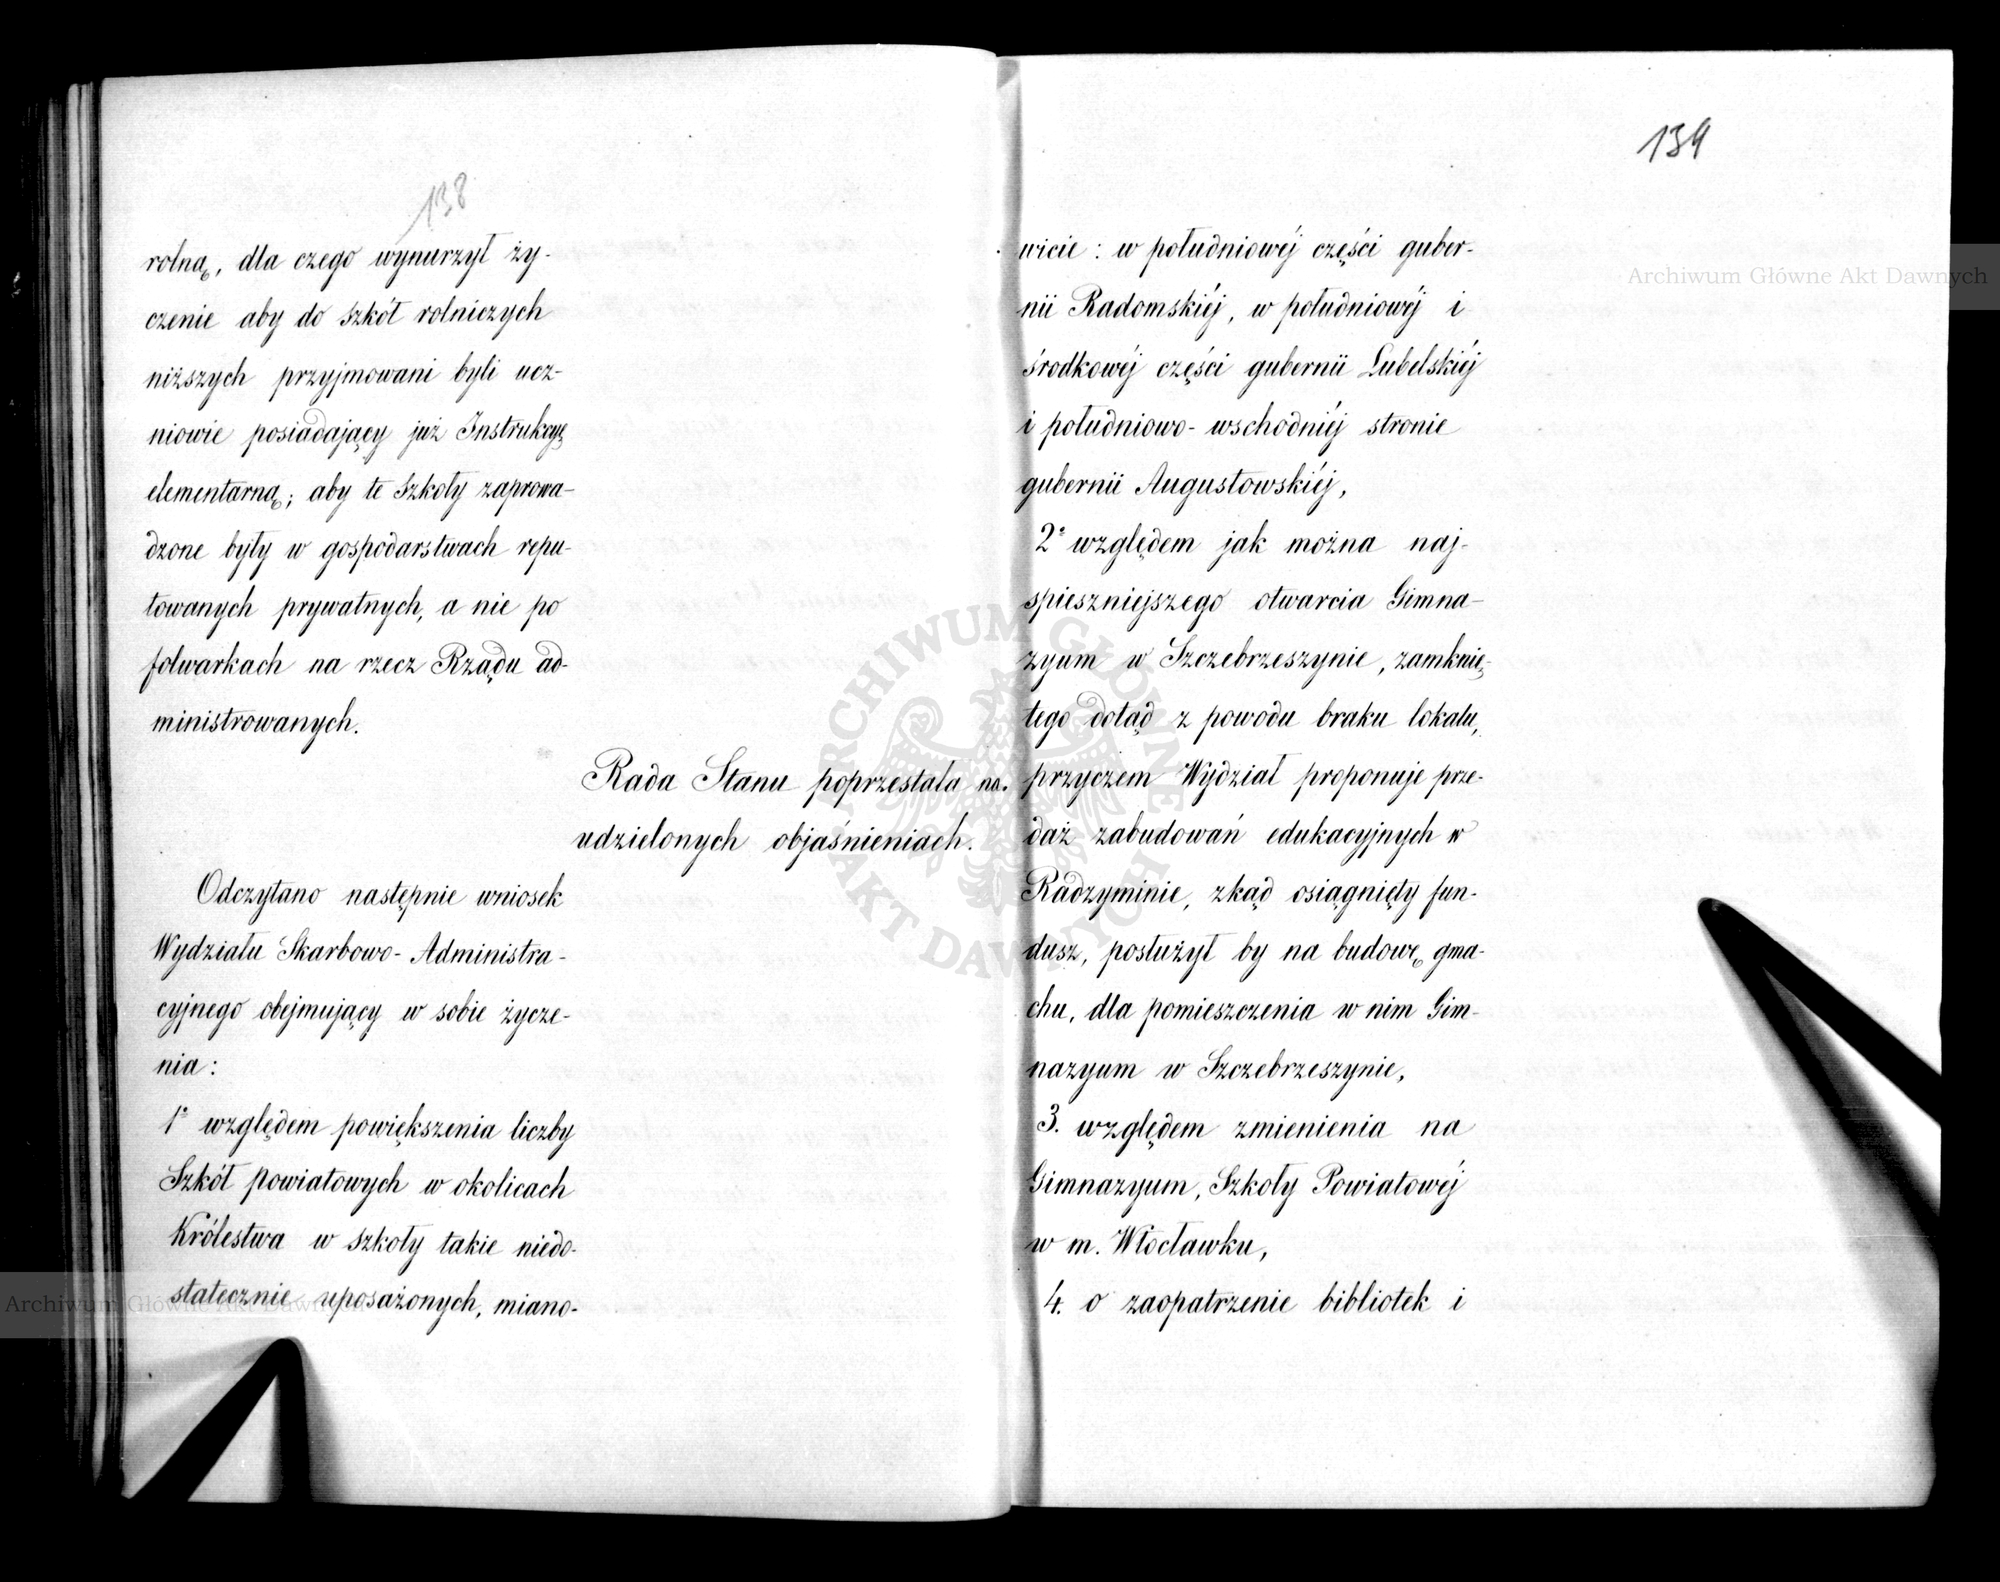 138
rolną, dla czego wynurzył ży-
czenie aby do szkół rolniczych
niższych przyjmowani byli ucz-
niowie posiadający już Instrukcyę
elementarną; aby te szkoły zaprowa-
dzone były w gospodarstwach repu-
towanych prywatnych, a nie po
folwarkach na rzecz Rządu ad-
ministrowanych.
Rada Stanu poprzestała na
udzielonych objaśnieniach.
Odczytano następnie wniosek
Wydziału Skarbowo-Administra-
cyjnego obejmujący w sobie życze-
nia:
1º względem powiększenia liczby
Szkół powiatowych w okolicach
Królestwa w szkoły takie niedo-
statecznie uposażonych, miano-
139
wicie: w południowéj części guber-
nii Radomskiéj, w południowéj i
środkowéj części gubernii Lubelskiéj
i południowo-wschodniéj stronie
gubernii Augustowskiéj,
2º względem jak można naj-
spieszniejszego otwarcia Gimna-
zyum w Szczebrzeszynie, zamknię-
tego dotąd z powodu braku lokalu,
przyczem Wydział proponuje prze-
daż zabudowań edukacyjnych w
Radzyminie, zkąd osiągnięty fun-
dusz, posłużył by na budowę gma-
chu, dla pomieszczenia w nim Gim-
nazyum w Szczebrzeszynie,
3. względem zmienienia na
Gimnazyum, Szkoły Powiatowéj
w m. Włocławku,
4. o zaopatrzenie bibliotek i
Archiwum Główne Akt Dawnych
Archiwum Główne Akt Dawnych
ARCHIWUM GŁÓWNE AKT DAWNYCH